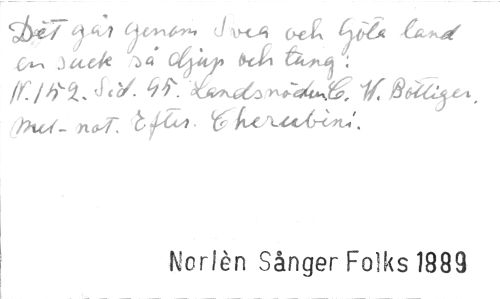 Det går genom Svea och Göta land
en suck så djup och tung.
N. 152. Sid. 95. Landsnöden C. W. Böttiger.
Mel-not. Efter. Cherubini.
Norlèn Sånger Folks 1889